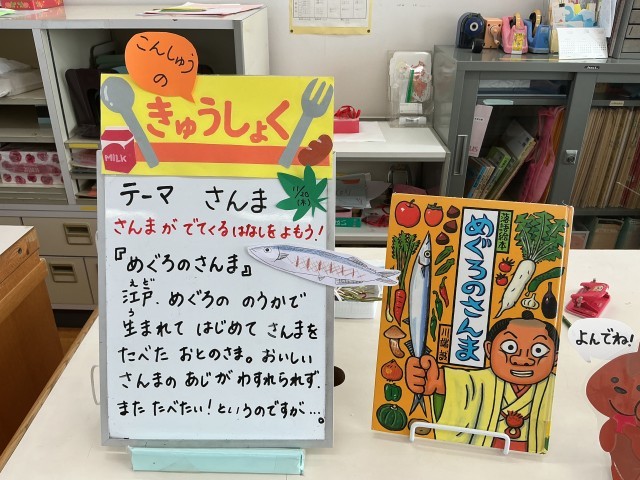 こんしゅう
の
きゅうしょく
MILK
テーマ さんま
11/20
(木)
さんまが でてくる はなしをよもう!
『めぐろのさんま』
江戸、めぐろの のうかで
えど
生まれて はじめて さんまを
う
たべた おとのさま。おいしい
さんまの あじが わすれられず、
また たべたい!というのですが…。
落語絵本
めぐろのさんま
川端 誠
よんでね!